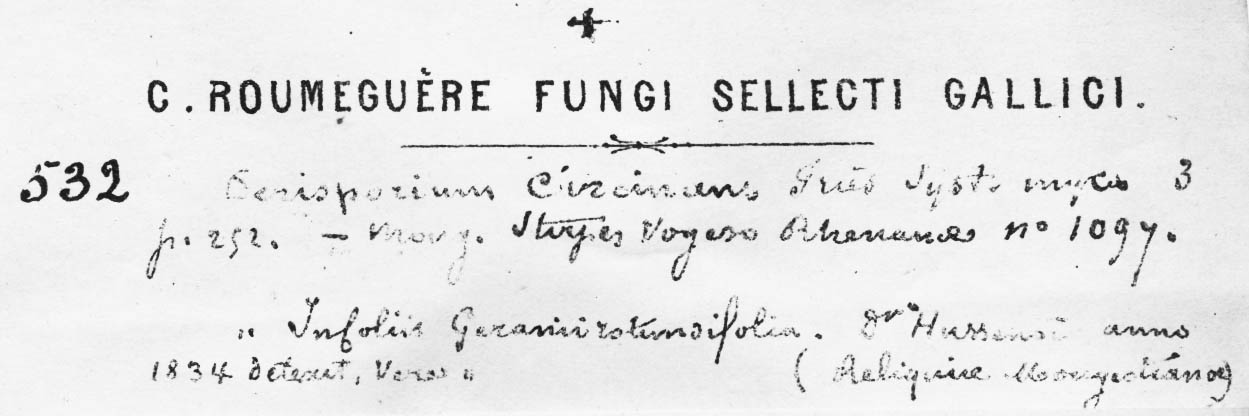 C. ROUMEGUÈRE FUNGI SELLECTI GALLICI.
532 Perisporium Circinans Fries Syst. myco 3
p. 252. — Moug. Stirpes Vogeso Rhenanae no 1097.
" In foliis Geranii rotundifolia. Dr anno
1834 detexit, Vere "
( Reliquiae Mougeotianae)